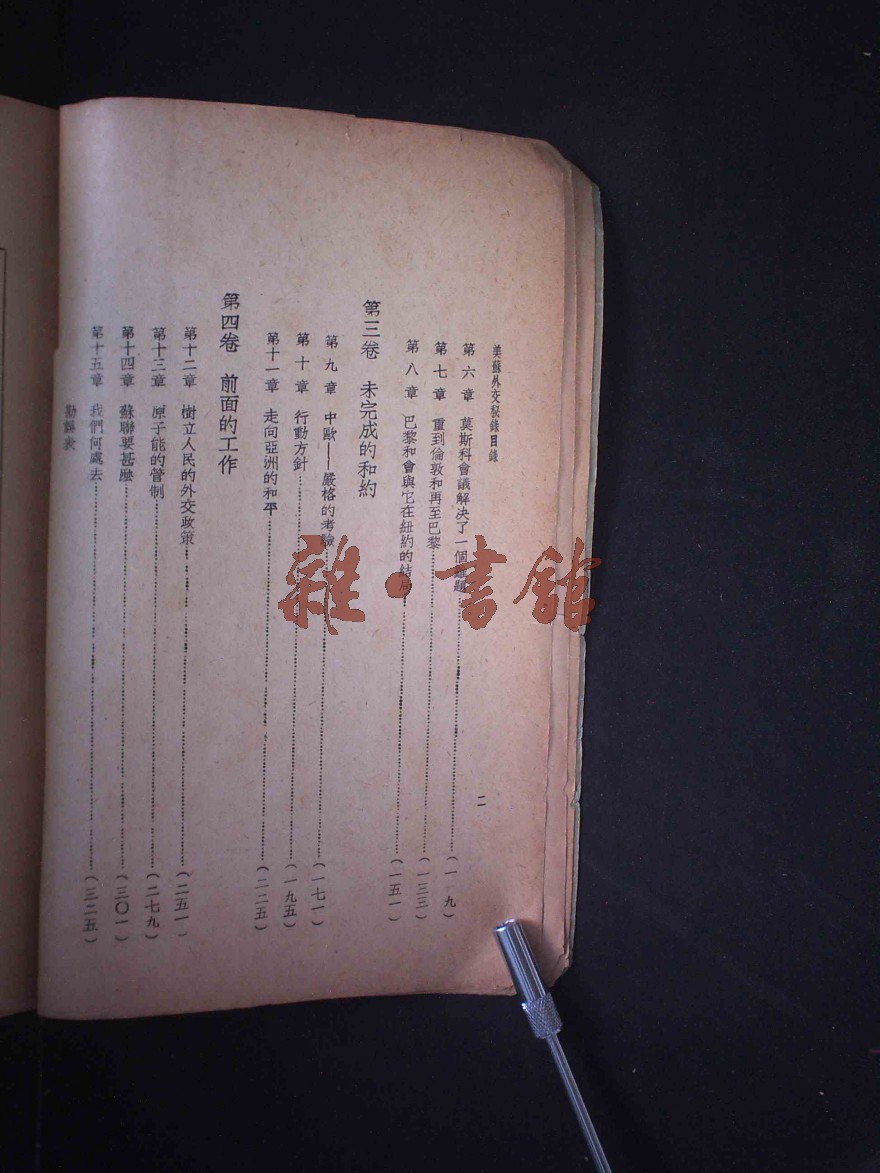 美蘇外交秘錄目錄
二
第六章 莫斯科會議解決了一個難題……(一 九)
第七章 重到倫敦和再至巴黎……(一三三)
第八章 巴黎和會與它在紐約的結局……(一五一)
第三卷 未完成的和約
第九章 中歐——嚴格的考驗……(一七一)
第十章 行動方針……(一九五)
第十一章 走向亞洲的和平……(二二五)
第四卷 前面的工作
第十二章 樹立人民的外交政策……(二五一)
第十三章 原子能的管制……(二七九)
第十四章 蘇聯要甚麼……(三〇一)
第十五章 我們何處去……(三二五)
勘誤表
雜·書館